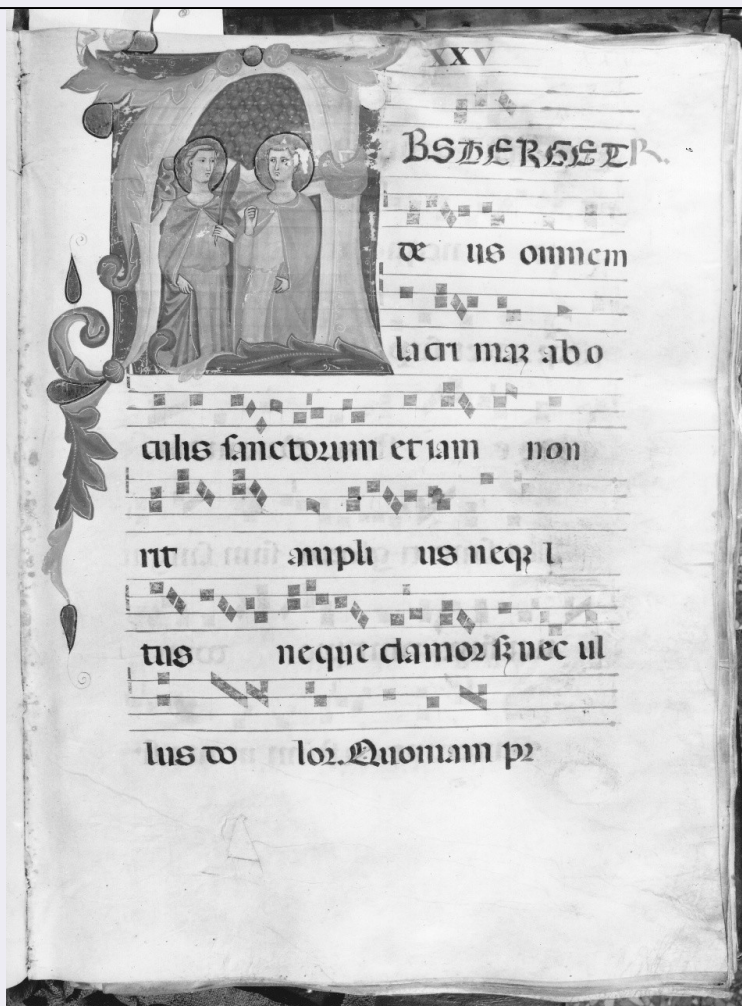 XXV
ABSTERGET
de us omnem
lacrimaꝝ ab o
culis sanctorum et iam non
rit ampli us neqꝫ l
tus neque clamor sꝫ nec ul
lus do lor. Quoniam pr